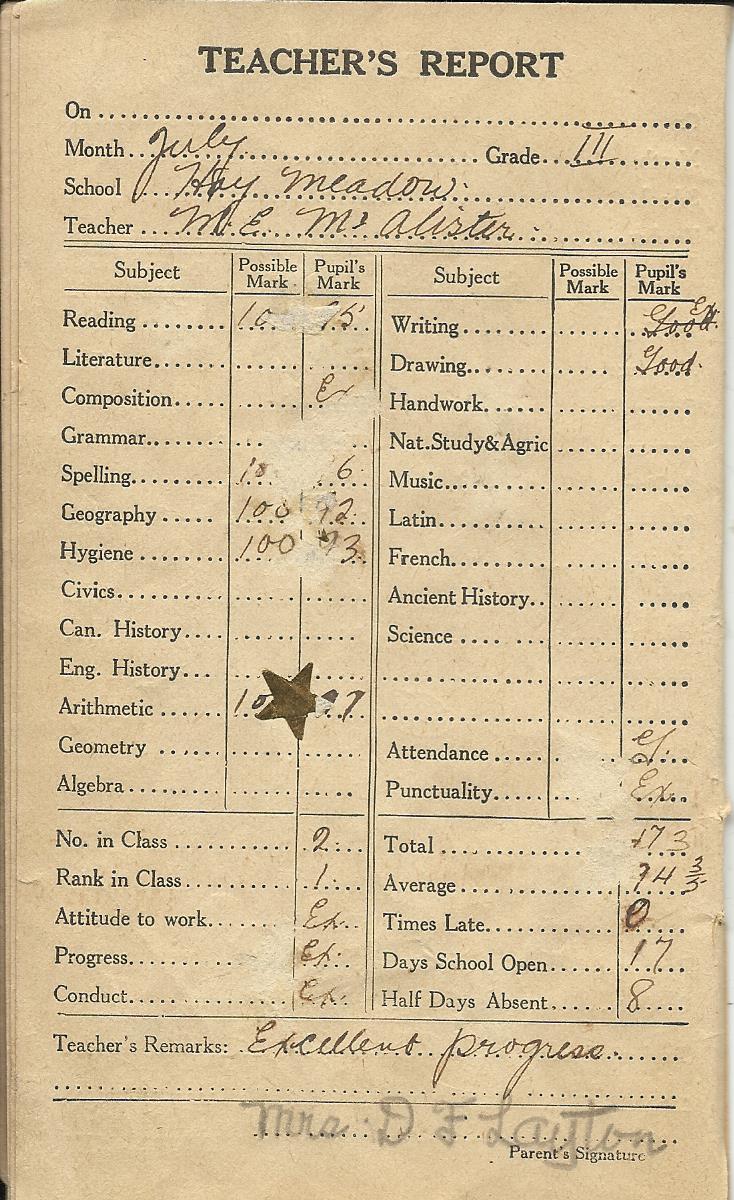 TEACHER'S REPORT
On
Month July Grade III
School Hay Meadow
Teacher M. E. Mc Alister
Subject Possible Mark Pupil's Mark
Reading 10 5
Literature
Composition Ex
Grammar
Spelling 10 6
Geography 100 92
Hygiene 100 93
Civics
Can. History
Eng. History
Arithmetic 10 97
Geometry
Algebra
No. in Class 2
Rank in Class 1
Attitude to work Ex.
Progress Ex.
Conduct Ex.
Subject Possible Mark Pupil's Mark
Writing Good Ex.
Drawing Good
Handwork
Nat.Study&Agric
Music
Latin
French
Ancient History
Science
Attendance
Punctuality Ex.
Total 473
Average 94 3/5
Times Late 0
Days School Open 17
Half Days Absent 8
Teacher's Remarks: Excellent progress
Mrs. D F Layton
Parent's Signature